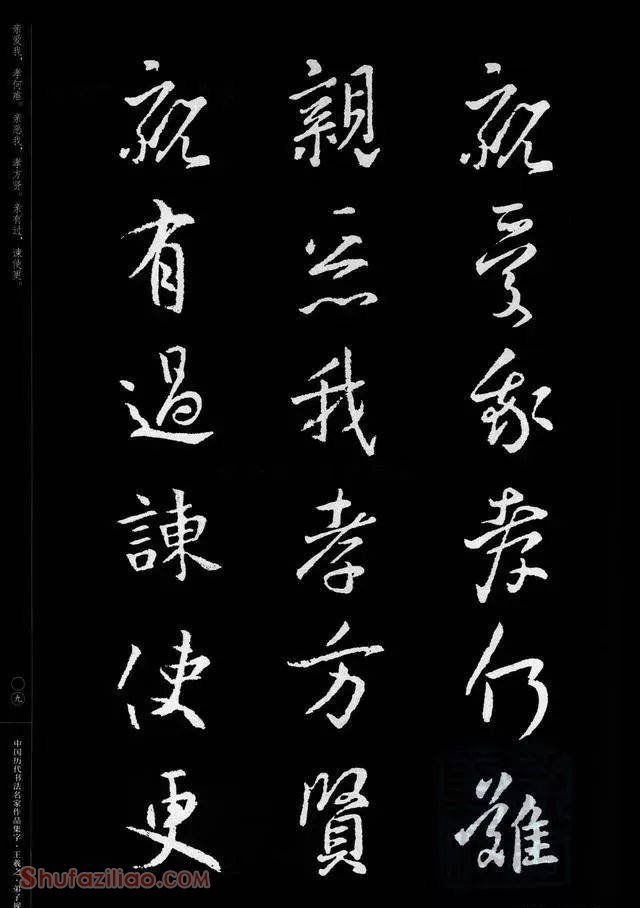 親愛我孝何難
親惡我孝方賢
親有過諫使更
亲爱我，孝何难。亲恶我，孝方贤。亲有过，谏使更。
〇九
中国历代书法名家作品集字·王羲之·弟子规
Shufaziliao.com